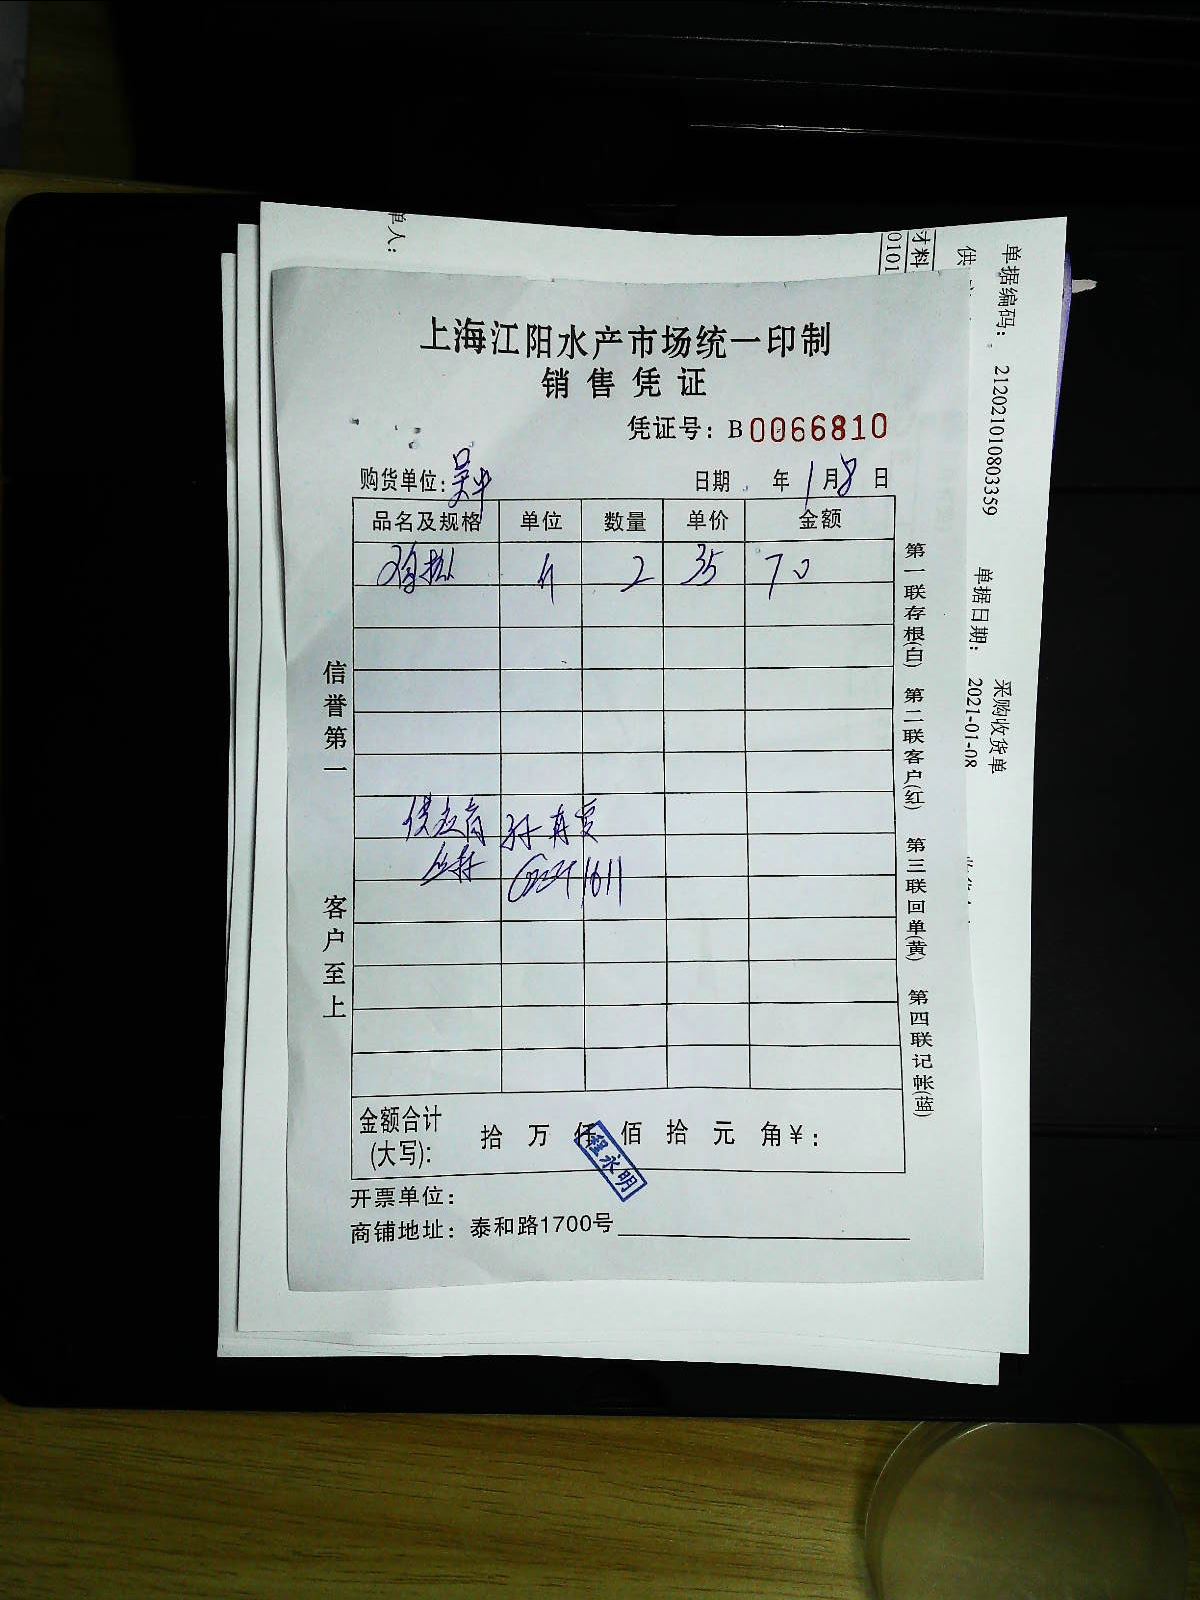 上海江阳水产市场统一印制
销售凭证
凭证号：B0066810
购货单位：吴平 日期 年1月8日
品名及规格 单位 数量 单价 金额
斤 2 35 70
供应商 孙再爱
信誉第一
客户至上
第一联存根(白) 第二联客户(红) 第三联回单(黄) 第四联记帐(蓝)
金额合计(大写)： 拾 万 仟 佰 拾 元 角¥：
程永明
开票单位：
商铺地址：泰和路1700号
单人：
材料
0101
供
单据编码： 212021010803359
单据日期： 2021-01-08
采购收货单